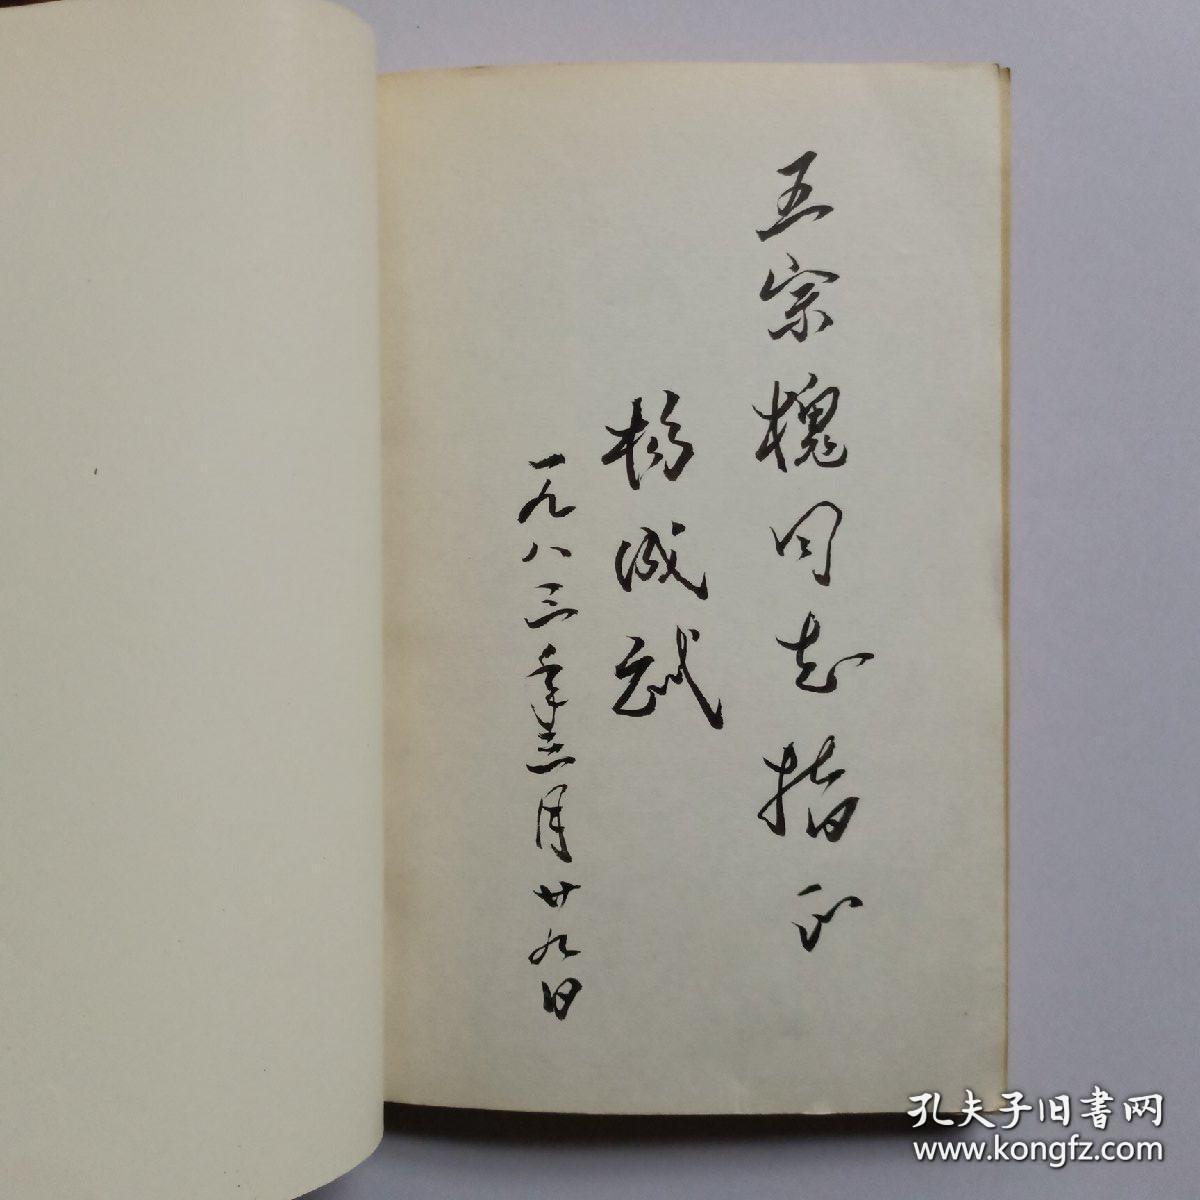 王宗槐同志指正
杨成武
一九八三年三月廿九日
孔夫子旧書网
www.kongfz.com